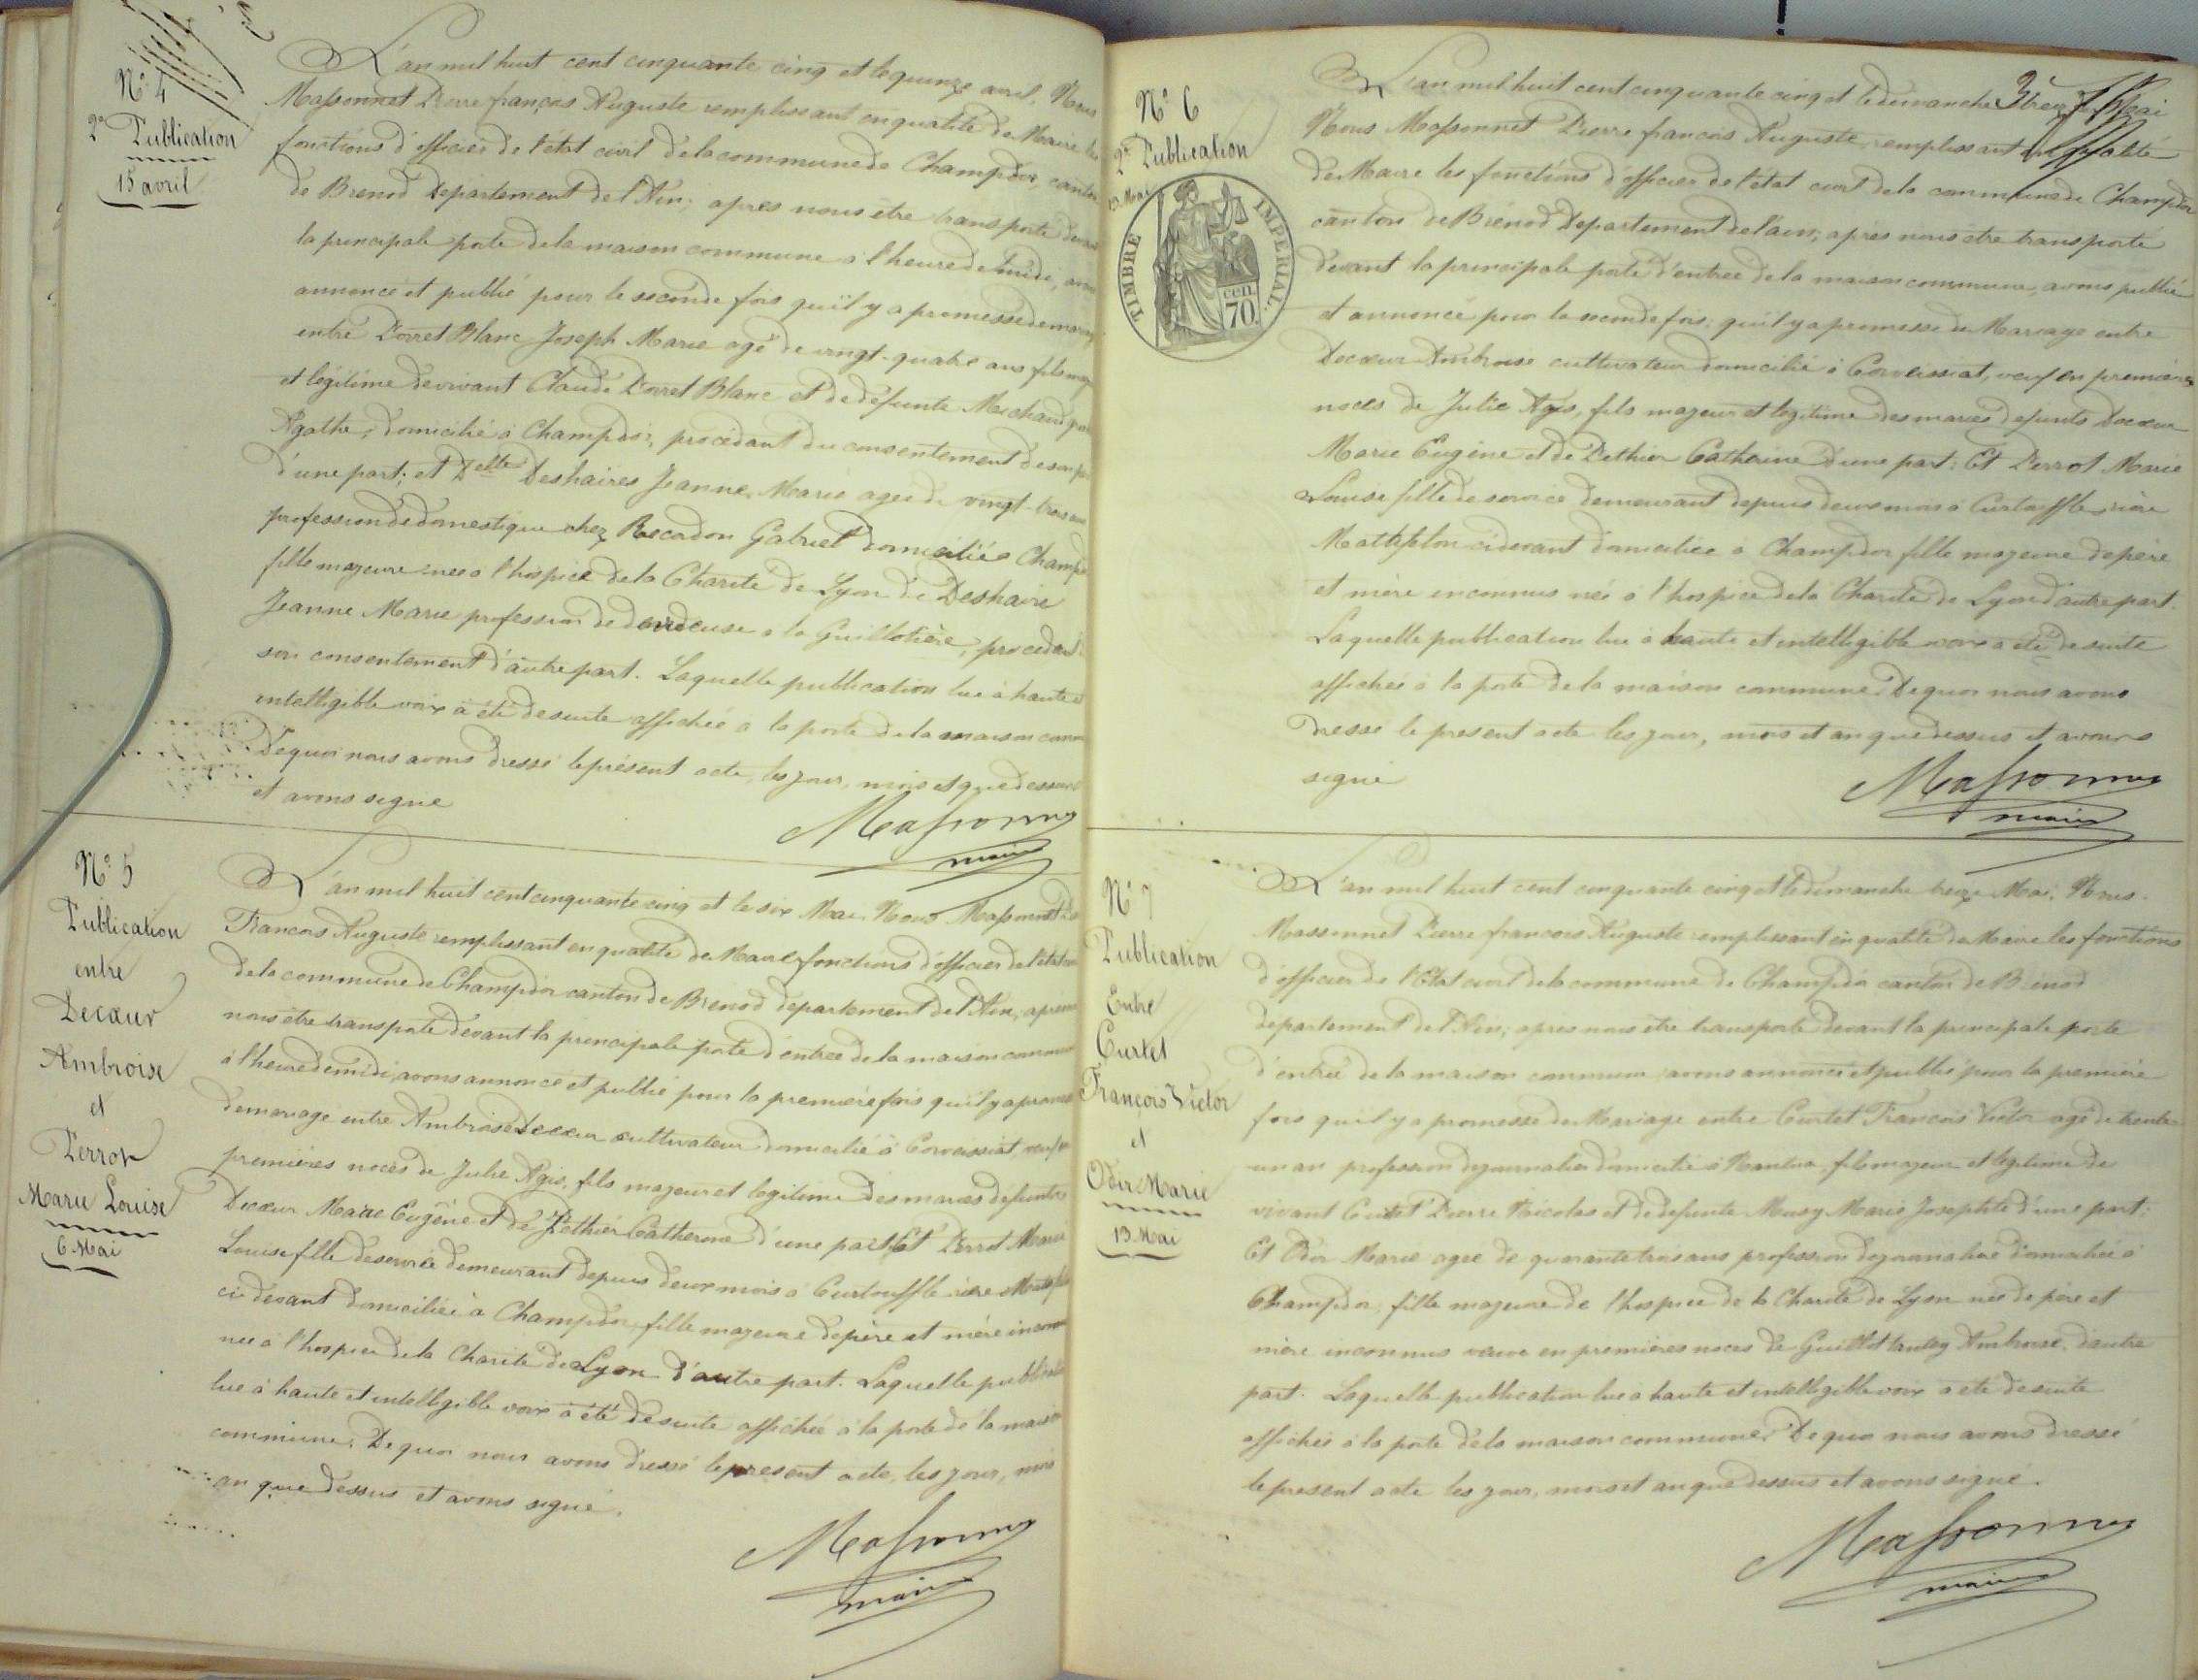 N° 4
2e Publication
15 avril
L'an mil huit cent cinquante cinq et le quinze avril, Nous
Massonnet Pierre françois Auguste remplissant en qualité de Maire les
fonctions d'officier de l'état civil de la commune de Champdor, canton
de Brenod Departement de l'Ain; apres nous être transporté devant
la principale porte de la maison commune à l'heure de midi, avons
annoncé et publié pour la seconde fois qu'il y a promesse de mariage
entre Porret Blanc Joseph Marie agé de vingt-quatre ans fils majeur
et légitime de vivant Claude Porret Blanc et de défunte
Agathe, domicilié à Champdor, procédant du consentement de son père
d'une part; et Delle Deshaires Jeanne Marie agée de vingt-trois ans
profession de domestique chez Recadon Gabriel domiciliée Champdor
fille majeure née à l'hospice de la Charité de Lyon de Deshaire
Jeanne Marie profession de devideuse à la Guillotière, procédant
son consentement d'autre part. Laquelle publication lue à haute et
intelligible voix a été desuite affichée à la porte de la maison commune
De quoi nous avons dressé le présent acte, les jour, mois et que dessus
et avons signé
Massonnet
maire
N° 5
Publication
entre
Decœur
Ambroise
et
Perrot
Marie Louise
6 Mai
L'an mil huit cent cinquante cinq et le six Mai. Nous Massonnet
Francois Auguste remplissant en qualité de Maire fonctions d'officier de l'état
de la commune de Champdor canton de Brenod departement de l'Ain, apres
nous être transporté devant la principale porte d'entrée de la maison commune
à l'heure de midi, avons annoncé et publié pour la première fois qu'il y a promesse
de mariage entre Ambroise Decœur cultivateur domicilié à Corveissiat, veuf en
premières noces de Julie Agis, fils majeur et legitime des mariés défunts
Decœur Marie Eugène et de Pethier Catherine d'une part; Et Perrot Marie
Louise fille de service demeurant depuis deux mois à Curtouffle rière
ci-devant domiciliée à Champdor, fille majeure de père et mère inconnus
née à l'hospice de la Charité de Lyon d'autre part. Laquelle publication
lue à haute et intelligible voix a été desuite affichée à la porte de la maison
commune. De quoi nous avons dressé le present acte, les jour, mois
an que dessus et avons signé.
Massonnet
maire
N° 6
2e Publication
13 Mai
TIMBRE IMPERIAL
cen.
70.
3
L'an mil huit cent cinquante cinq et le dimanche treize Mai
Nous Massonnet Pierre francois Auguste, remplissant en qualité
de Maire les fonctions d'officier de l'état civil de la commune de Champdor
canton de Brénod Departement de l'ain; apres nous etre transporté
devant la principale porte d'entrée de la maison commune, avons publié
et annoncé pour la seconde fois: qu'il y a promesse de Mariage entre
Decœur Ambroise cultivateur domicilié à Corveissiat, veuf en premières
noces de Julie Agis, fils majeur et legitime des mariés defunts Decœur
Marie Eugène et de Pethier Catherine d'une part; Et Perrot Marie
Louise fille de service demeurant depuis deux mois à Curtouffle rière
Mathfelon cidevant domiciliée à Champdor fille majeure de père
et mère inconnus née à l'hospice de la Charité de Lyon d'autre part.
Laquelle publication lue à haute et intelligible voix a été desuite
affichée à la porte de la maison commune. De quoi nous avons
dressé le present acte les jour, mois et an que dessus et avons
signé
Massonnet
maire
N° 7
Publication
Entre
Curtet
Francois Victor
et
Odir Marie
13 Mai
L'an mil huit cent cinquante cinq et le dimanche treize Mai, Nous.
Massonnet Pierre francois Auguste remplissant en qualité de Maire les fonctions
d'officier de l'Etat civil de la commune de Champdor canton de Brénod
departement de l'Ain; apres nous etre transporté devant la principale porte
d'entrée de la maison commune, avons annoncé et publié pour la première
fois qu'il y a promesse de Mariage entre Curtet Francois Victor agé de trente
un an profession de journalier domicilié à Nantua, fils majeur et legitime de
vivant Curtet Pierre Nicolas et de défunte Musy Marie Josephte d'une part;
Et Odir Marie agée de quarante trois ans profession de journalière domiciliée à
Champdor, fille majeure de l'hospice de la Charité de Lyon née de père et
mère inconnus veuve en premières noces de Guillot Ambroise d'autre
part. Laquelle publication lue à haute et intelligible voix a été desuite
affichée à la porte de la maison commune. De quoi nous avons dressé
le present acte les jour, mois et an que dessus et avons signé.
Massonnet
maire